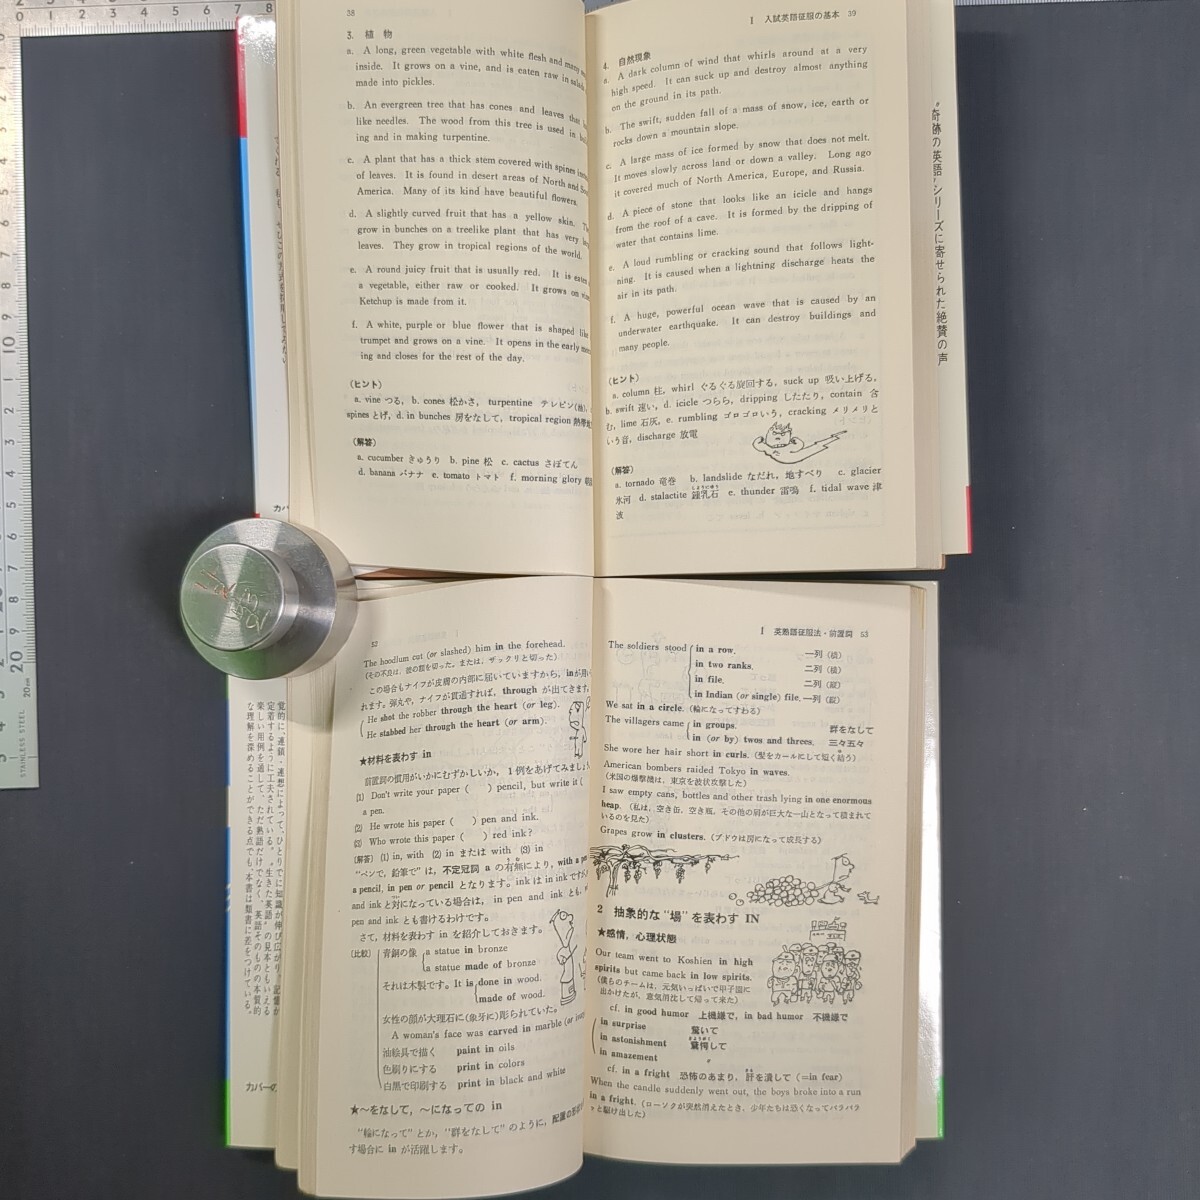 38
3. 植 物
a. A long, green vegetable with white flesh and many
inside. It grows on a vine, and is eaten raw in
made into pickles.
b. An evergreen tree that has cones and leaves that
like needles. The wood from this tree is used in
ing and in making turpentine.
c. A plant that has a thick stem covered with spines
of leaves. It is found in desert areas of North and
America. Many of its kind have beautiful flowers.
d. A slightly curved fruit that has a yellow skin.
grow in bunches on a treelike plant that has very
leaves. They grow in tropical regions of the world.
e. A round juicy fruit that is usually red. It is
a vegetable, either raw or cooked. It grows on
Ketchup is made from it.
f. A white, purple or blue flower that is shaped like
trumpet and grows on a vine. It opens in the early
ing and closes for the rest of the day.
(ヒント)
a. vine つる, b. cones 松かさ, turpentine テレビン(油),
spines とげ, d. in bunches 房をなして, tropical region
(解答)
a. cucumber きゅうり b. pine 松 c. cactus さぼてん
d. banana バナナ e. tomato トマト f. morning glory
I 入試英語征服の基本 39
4. 自然現象
a. A dark column of wind that whirls around at a very
high speed. It can suck up and destroy almost anything
on the ground in its path.
b. The swift, sudden fall of a mass of snow, ice, earth or
rocks down a mountain slope.
c. A large mass of ice formed by snow that does not melt.
It moves slowly across land or down a valley. Long ago
it covered much of North America, Europe, and Russia.
d. A piece of stone that looks like an icicle and hangs
from the roof of a cave. It is formed by the dripping of
water that contains lime.
e. A loud rumbling or cracking sound that follows light-
ning. It is caused when a lightning discharge heats the
air in its path.
f. A huge, powerful ocean wave that is caused by an
underwater earthquake. It can destroy buildings and
many people.
(ヒント)
a. column 柱, whirl ぐるぐる旋回する, suck up 吸い上げる,
b. swift 速い, d. icicle つらら, dripping したたり, contain 含
む, lime 石灰, e. rumbling ゴロゴロいう, cracking メリメリと
いう音, discharge 放電
(解答)
a. tornado 竜巻 b. landslide なだれ, 地すべり c. glacier
氷河 d. stalactite 鍾乳石 e. thunder 雷鳴 f. tidal wave 津
波
"奇跡の英語"シリーズに寄せられた絶賛の声
カバー
STAINLESS STEEL
20cm
52
The hoodlum cut (or slashed) him in the forehead.
(その不良は, 彼の額を切った, または, ザックリと切った)
この場合もナイフが皮膚の内部に届いていますから, inが
れます. 弾丸や, ナイフが貫通すれば, through が出てきます.
He shot the robber through the heart (or leg).
He stabbed her through the heart (or arm).
★材料を表わす in
前置詞の慣用がいかにむずかしいか, 1例をあげてみましょ
(1) Don't write your paper ( ) pencil, but write it (
a pen.
(2) He wrote his paper ( ) pen and ink.
(3) Who wrote this paper ( ) red ink?
(解答) (1) in, with (2) in または with (3) in
"ペンで, 鉛筆で" は, 不定冠詞 a の有無により, with a
a pencil, in pen or pencil となります. ink は in ink ですが,
and ink と対になっている場合は, in pen and ink とも,
pen and ink とも書けるわけです.
さて, 材料を表わす in を紹介しておきます.
〔比較〕 青銅の像 a statue in bronze
a statue made of bronze
それは木製です. It is done in wood.
made of wood.
女性の顔が大理石に(象牙に)彫られていた.
A woman's face was carved in marble (or
油絵具で描く paint in oils
色刷りにする print in colors
白黒で印刷する print in black and white
★〜をなして, 〜になっての in
"輪になって" とか, "群をなして" のように, 配置の形
す場合に in が活躍します.
I 英熟語征服法・前置詞 53
The soldiers stood in a row. 一列(横)
in two ranks. 二列(横)
in file. 二列(縦)
in Indian (or single) file. 一列(縦)
We sat in a circle. (輪になってすわる)
The villagers came in groups. 群をなして
in (or by) twos and threes. 三々五々
She wore her hair short in curls. (髪をカールにして短く結う)
American bombers raided Tokyo in waves.
(米国の爆撃機は, 東京を波状攻撃した)
I saw empty cans, bottles and other trash lying in one enormous
heap. (私は, 空き缶, 空き瓶, その他の屑が巨大な一山となって積まれて
いるのを見た)
Grapes grow in clusters. (ブドウは房になって成長する)
2 抽象的な "場" を表わす IN
★感情, 心理状態
Our team went to Koshien in high
spirits but came back in low spirits.
(僕らのチームは, 元気いっぱいで甲子園に
出かけたが, 意気消沈して帰って来た)
cf. in good humor 上機嫌で, in bad humor 不機嫌で
in surprise 驚いて
in astonishment 驚愕して
in amazement 〃
cf. in a fright 恐怖のあまり, 肝を潰して (=in fear)
When the candle suddenly went out, the boys broke into a run
in a fright. (ローソクが突然消えたとき, 少年たちは恐くなってバラバラ
ッと駆け出した)
覚的に、連鎖・連想によって、ひとりでに知識が伸び広がり、記憶が
定着するように工夫されている。"生きた英語"の見本ともいえる
楽しい用例を通して、ただ熟語だけでなく、英語そのものの本質的
な理解を深めることができる点でも、本書は類書に差をつけている。
カバーの